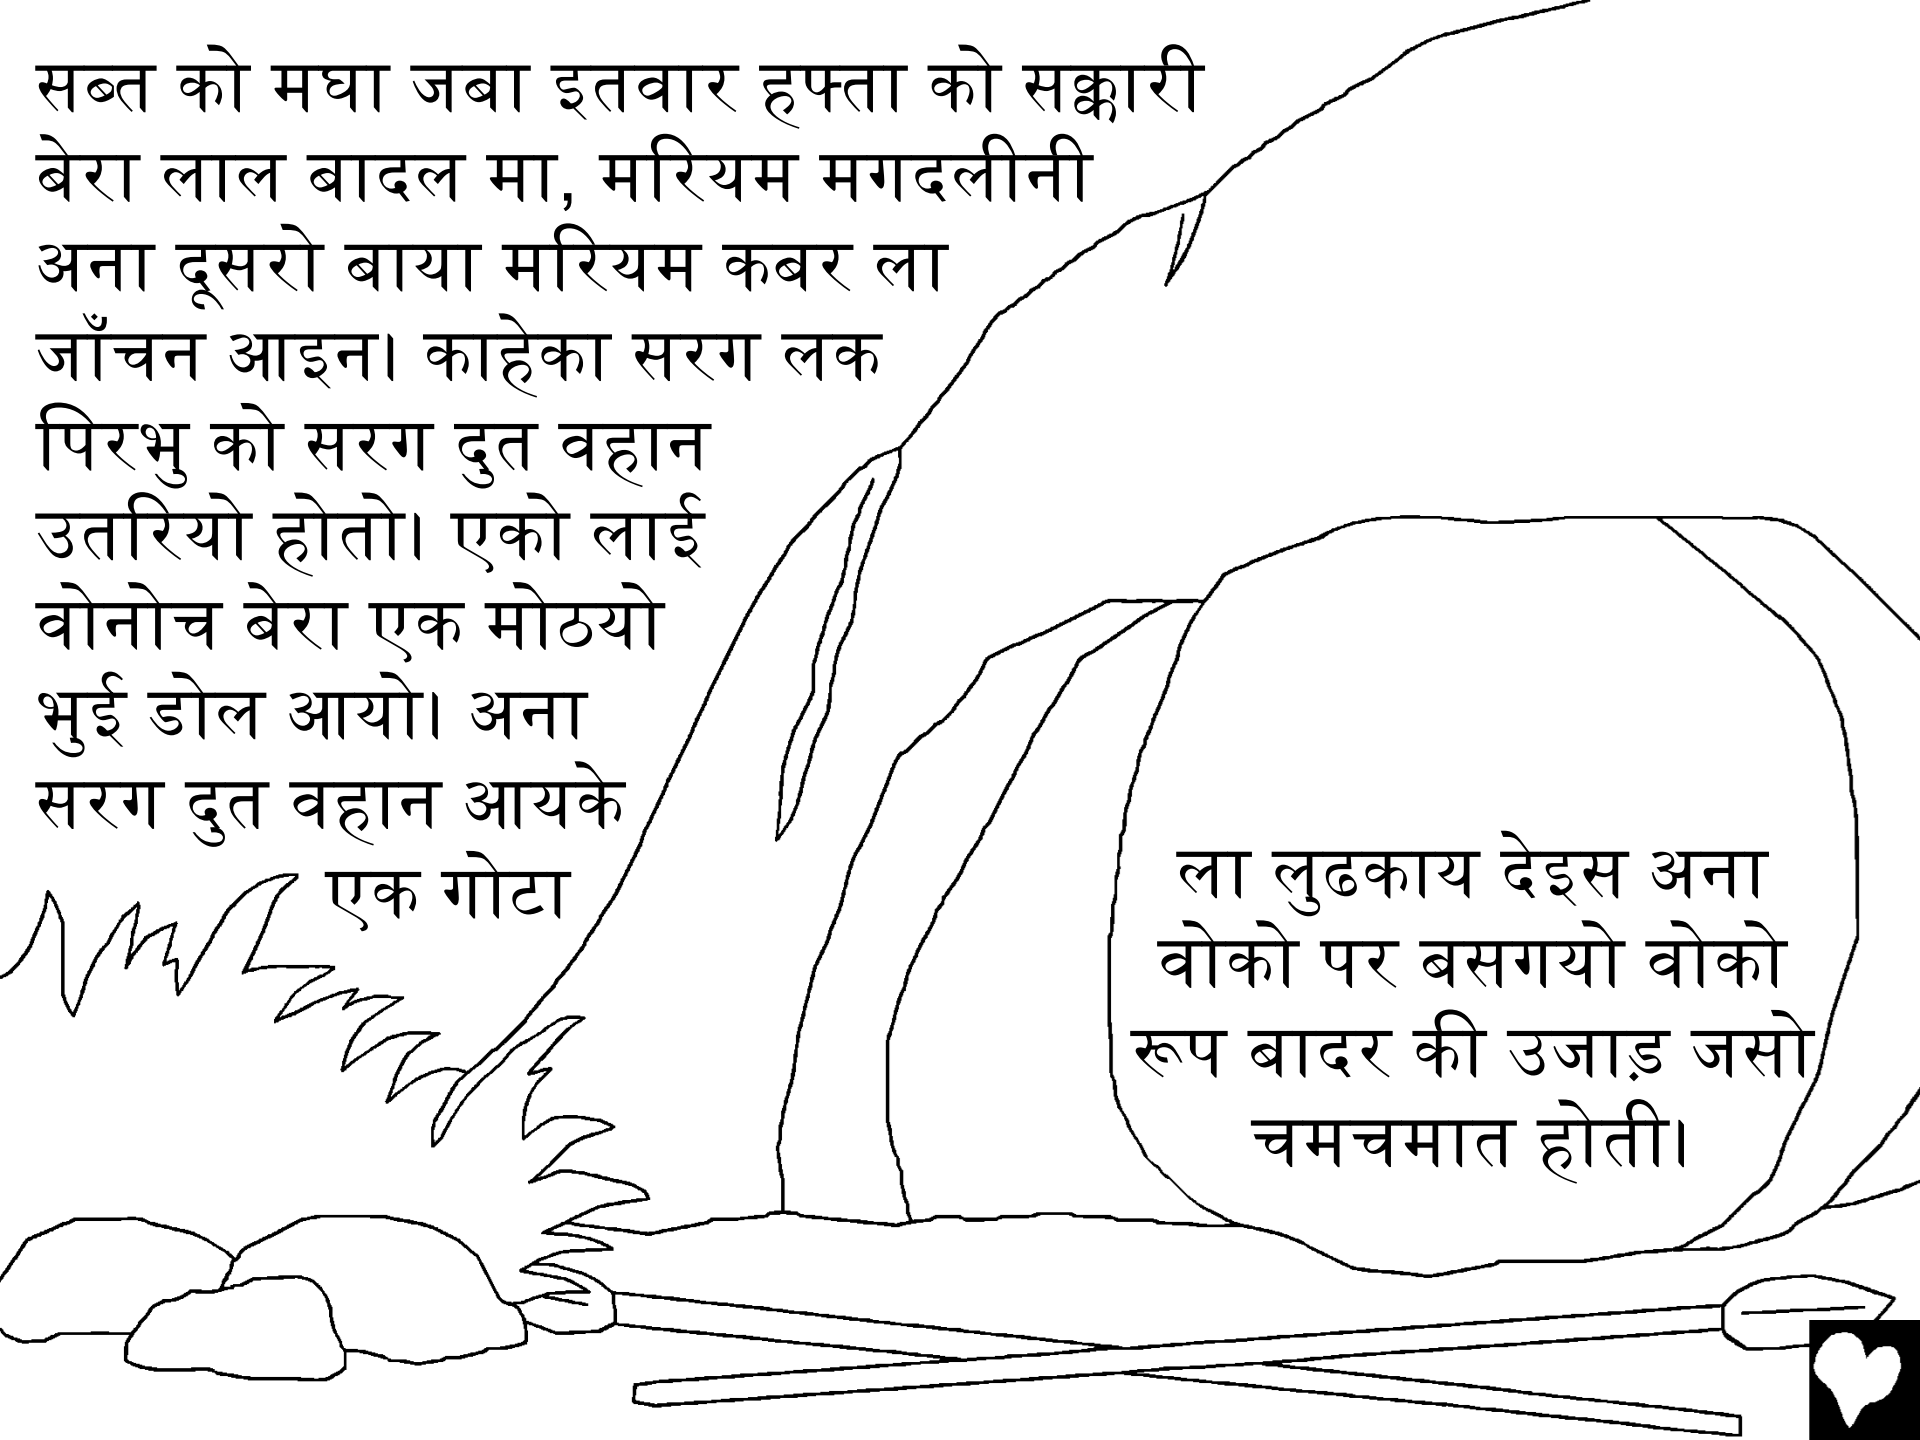 सब्त को मघा जबा इतवार हफ्ता को सक्कारी
बेरा लाल बादल मा, मरियम मगदलीनी
अना दूसरो बाया मरियम कबर ला
जाँचन आइन। काहेका सरग लक
पिरभु को सरग दुत वहान
उतरियो होतो। एको लाई
वोनोच बेरा एक मोठयो
भुई डोल आयो। अना
सरग दुत वहान आयके
एक गोटा
ला लुढकाय देइस अना
वोको पर बसगयो वोको
रूप बादर की उजाड़ जसो
चमचमात होती।